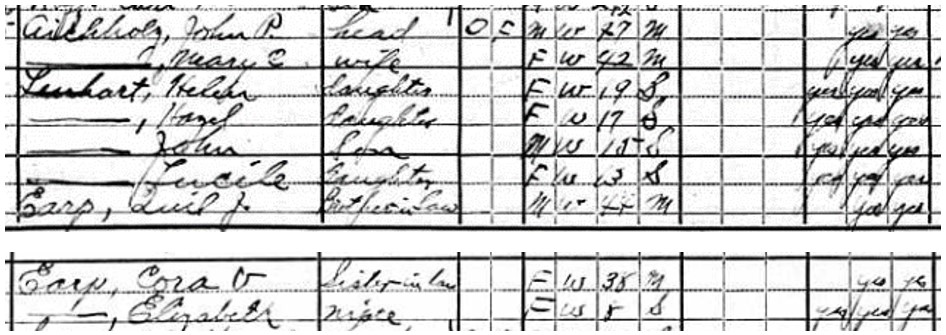 Aichholz, John P. head O F M W 47 M yes yes
——, Mary C. wife F W 42 M yes yes
Lenhart, Helen daughter F W 19 S yes yes yes
——, Hazel daughter F W 17 S yes yes yes
—— John Son M W 15 S yes yes yes
—— Lucile daughter F W 13 S yes yes yes
Earp, J. brother in law M W 44 M yes yes
Earp, Cora V Sister in law F W 38 M yes yes
——, Elizabeth niece F W 8 S yes yes yes